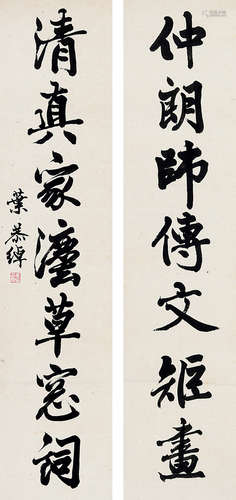 仲朗師傳文矩畫
清真家灋草窓詞
葉恭綽